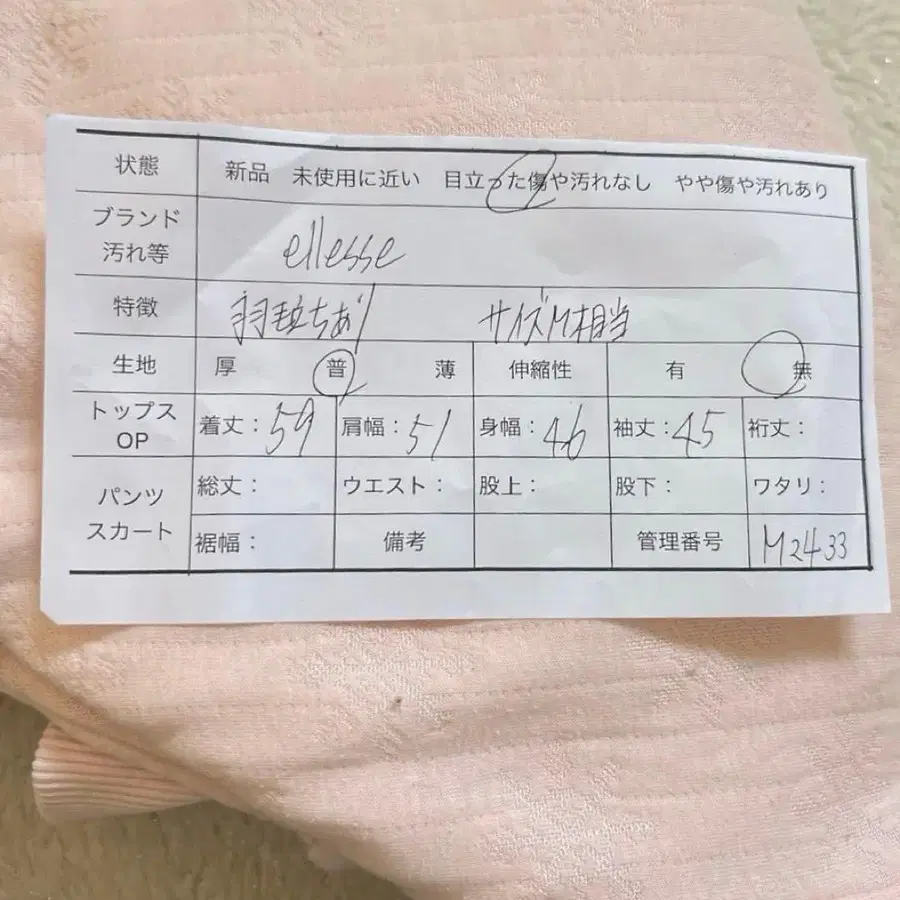 状態 新品 未使用に近い 目立った傷や汚れなし やや傷や汚れあり
ブランド
汚れ等 ellesse
特徴 毛羽立ちあり サイズM相当
生地 厚 普 薄 伸縮性 有 無
トップス
OP 着丈：59 肩幅：51 身幅：46 袖丈：45 裄丈：
パンツ
スカート 総丈： ウエスト： 股上： 股下： ワタリ：
裾幅： 備考 管理番号 M2433